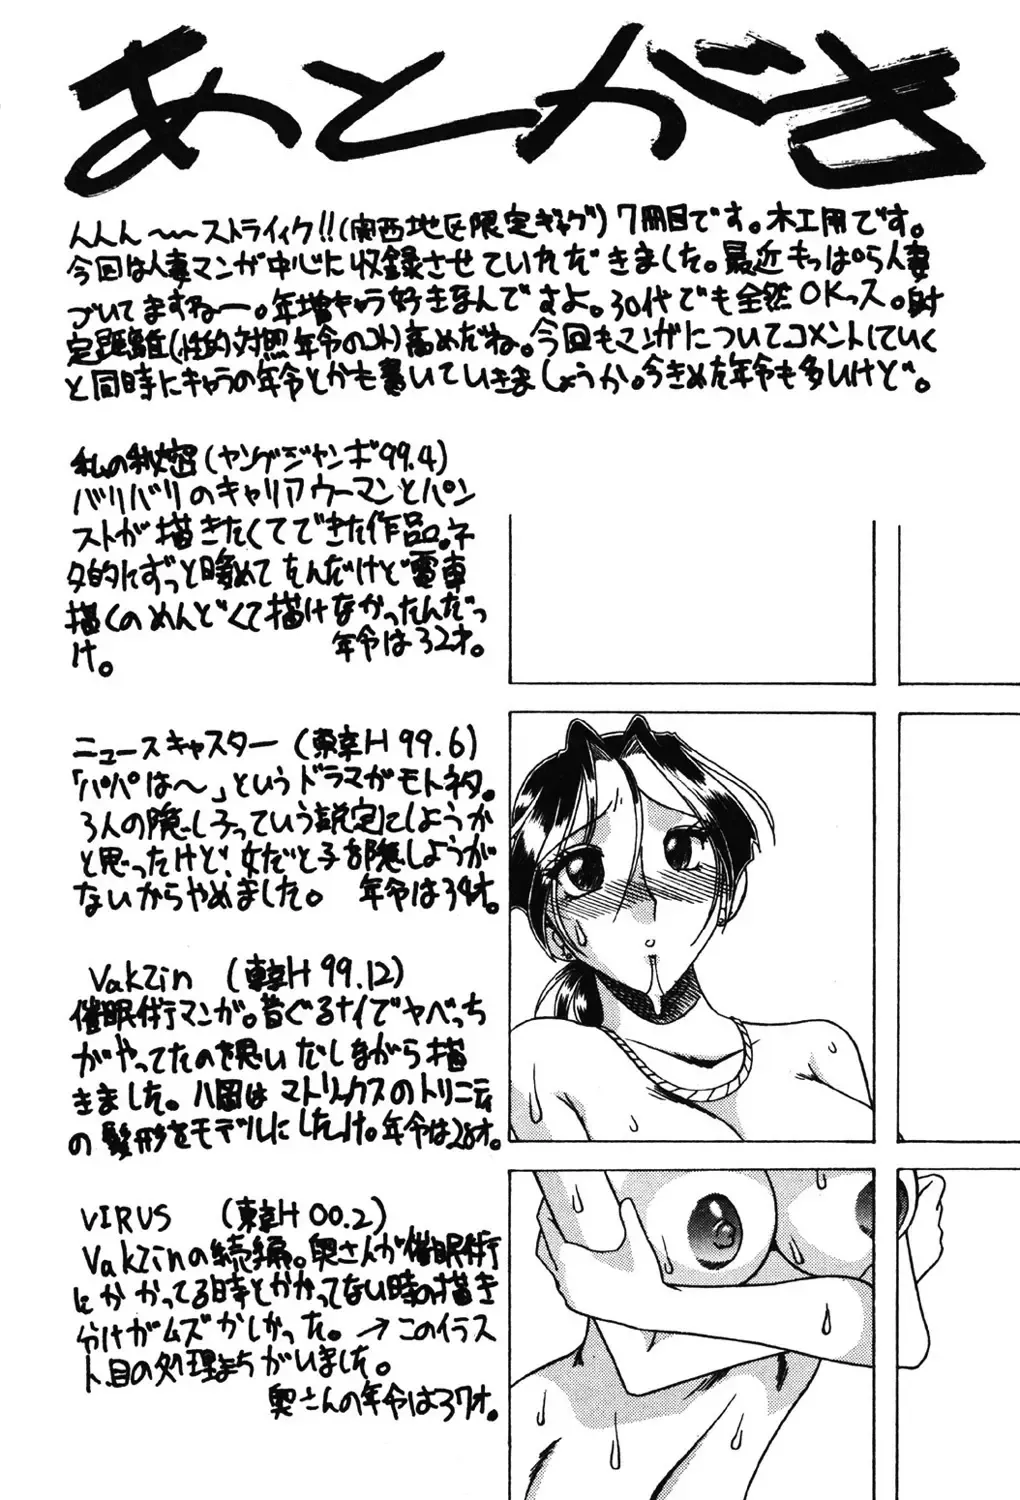 あとがき
んんん〜〜ストライィク!!(関西地区限定ギャグ)7冊目です。木工用です。
今回は人妻マンガ中心に収録させていただきました。最近もっぱら人妻
づいてますねー。年増キャラ好きなんですよ。30代でも全然OKっス。射
定距離(性的対照年令のコト)高めだね。今回もマンガについてコメントしていく
と同時にキャラの年令とかも書いていきましょうか。今きめた年令も多いけど。
私の秘密(ヤングジャンボ'99.4)
バリバリのキャリアウーマンとパン
ストが描きたくてできた作品。ネ
タ的にずっと暖めてたんだけど電車
描くのめんどくて描けなかったんだっ
け。
年令は32才。
ニュースキャスター(東京H 99.6)
「パパは〜」というドラマがモトネタ。
3人の隠し子っていう設定にしようか
と思ったけど、女だと子を隠しようが
ないからやめました。 年令は34才。
Vakzin (東京H 99.12)
催眠術マンガ。昔ぐるナイでヤベっち
がやってたのを思いだしながら描
きました。八岡はマトリックスのトリニティ
の髪形をモデルにしたっけ。年令は28才。
VIRUS (東京H 00.2)
Vakzinの続編。奥さんが催眠術
にかかってる時とかかってない時の描き
分けがムズかしかった。→このイラス
ト、目の処理まちがいました。
奥さんの年令は37才。